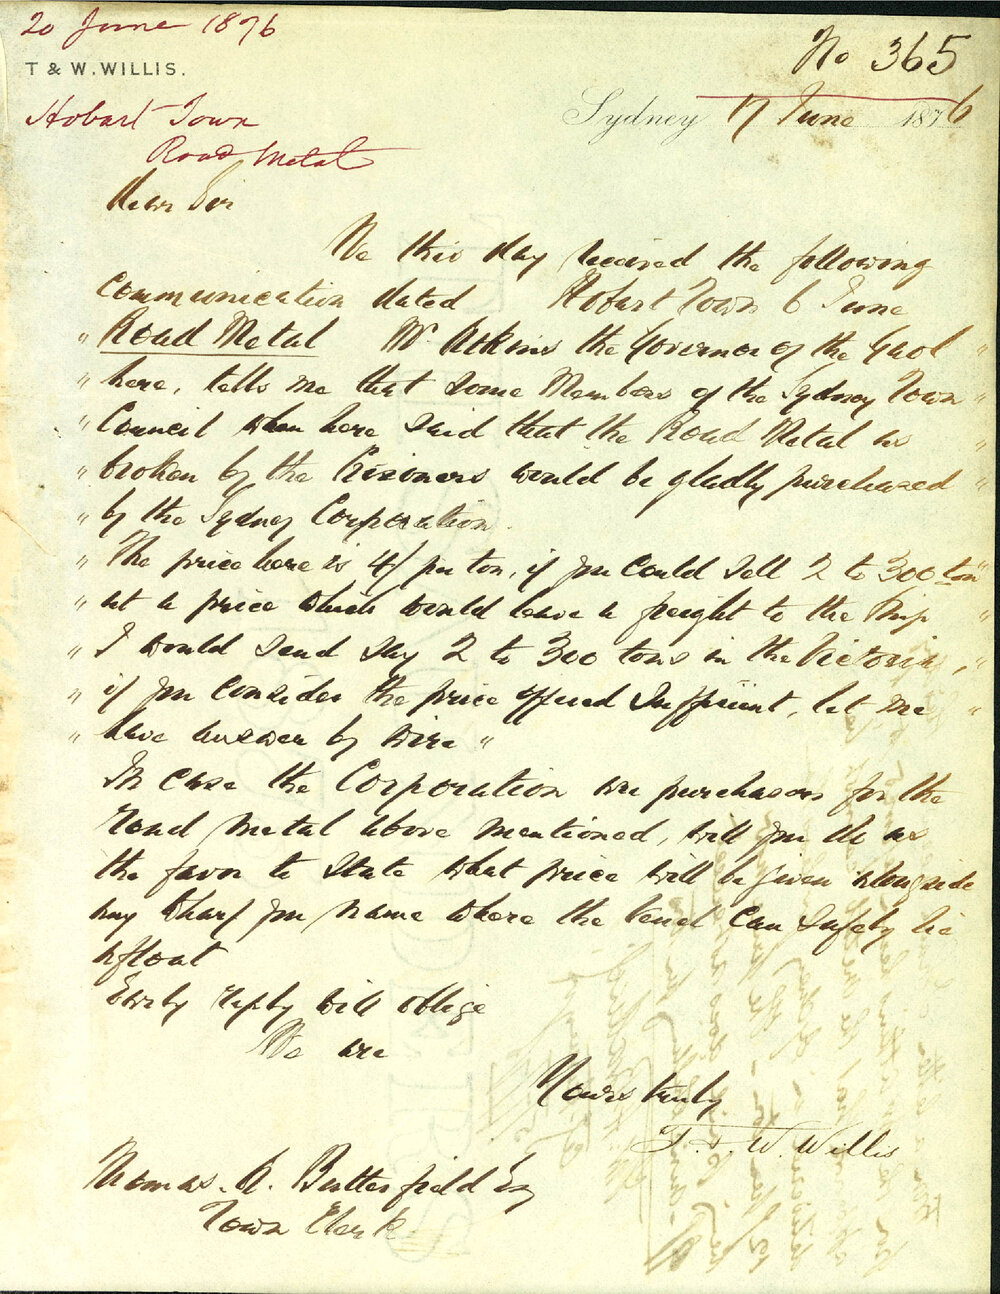 20 June 1876
No 365
T & W. WILLIS.
Hobart Town
Road Metal
Sydney 17 June 1876
Dear Sir
We this day received the following
Communication dated Hobart Town 6 June
" Road Metal Mr Atkins the Governor of the Gaol "
" here, tells me that some Members of the Sydney Town "
" Council when here said that the Road Metal as "
" broken by the Prisoners would be gladly purchased "
" by the Sydney Corporation.
" The price here is 4/ per ton, if you could sell 2 to 300 ton "
" at a price which would leave a freight to the Ship "
" I would send say 2 to 300 tons in the Victoria, "
" if you consider the price offered sufficient, let me "
" have answer by wire "
In case the Corporation are purchasers for the
road metal above mentioned, will you do us
the favor to state what price will be given alongside
any Wharf you name where the vessel can safely lie
afloat
Early reply will oblige
We are
Yours truly
T. & W. Willis
Thomas. A. Butterfield Esq
Town Clerk